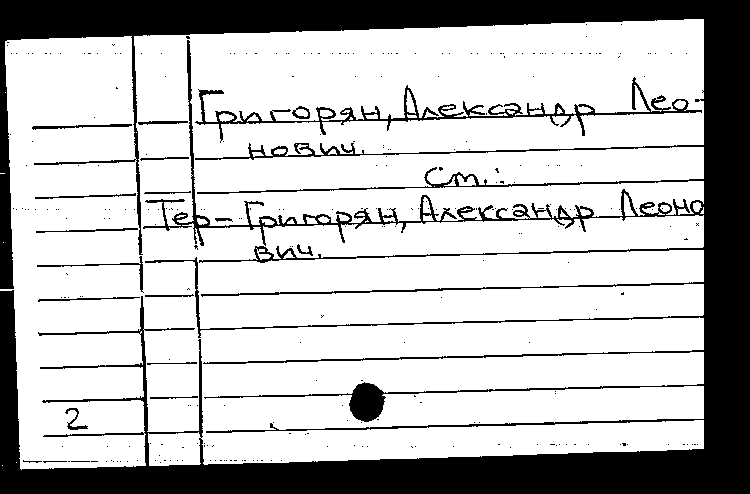 Григорян, Александр Лео-
нович.
См.:
Тер-Григорян, Александр Леоно
вич.
2